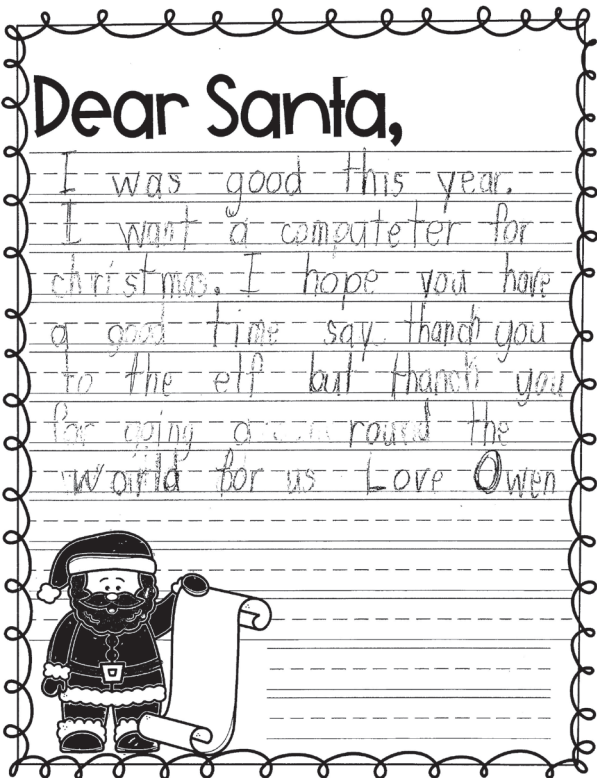 Dear Santa,
I was good this year.
I want a computeter for
christmas. I hope you have
a good time say thanch you
to the elf but thanch you
for going a round the
world for us Love Owen